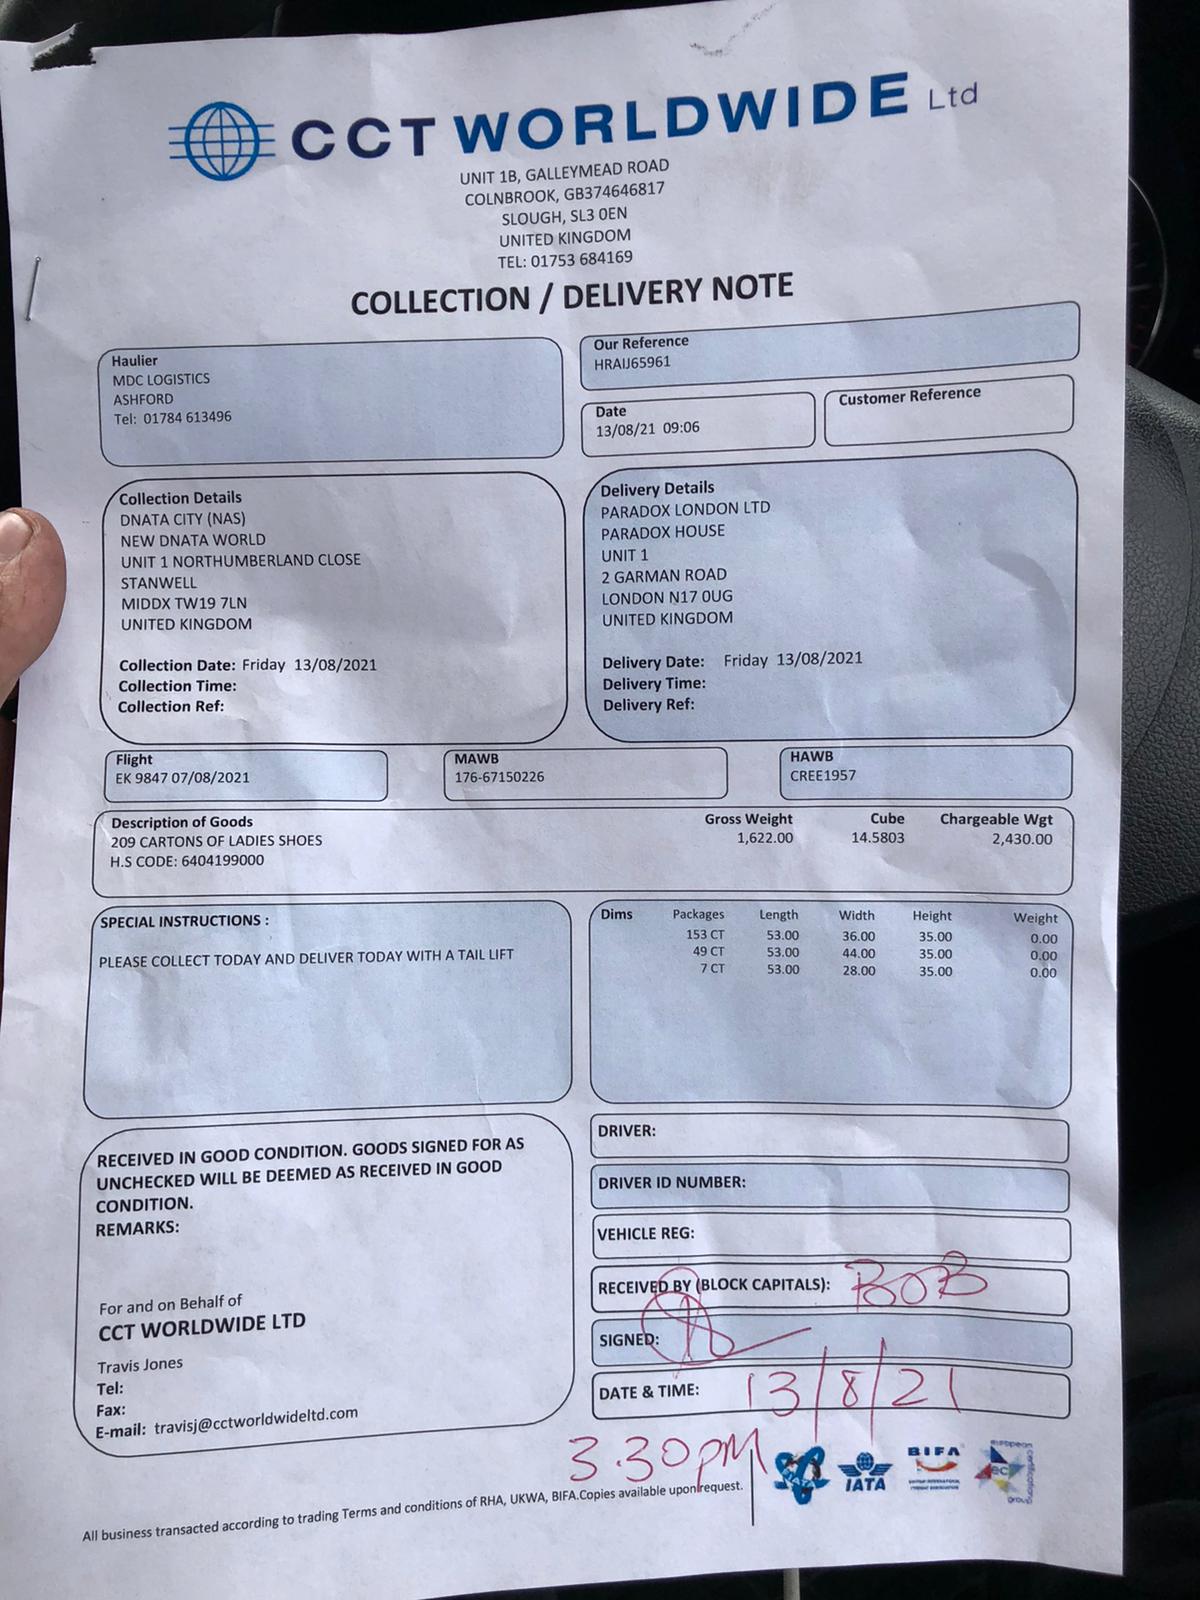 CCT WORLDWIDE Ltd
UNIT 1B, GALLEYMEAD ROAD
COLNBROOK, GB374646817
SLOUGH, SL3 0EN
UNITED KINGDOM
TEL: 01753 684169
COLLECTION / DELIVERY NOTE
Haulier
MDC LOGISTICS
ASHFORD
Tel: 01784 613496
Our Reference
HRAIJ65961
Date
13/08/21 09:06
Customer Reference
Collection Details
DNATA CITY (NAS)
NEW DNATA WORLD
UNIT 1 NORTHUMBERLAND CLOSE
STANWELL
MIDDX TW19 7LN
UNITED KINGDOM
Collection Date: Friday 13/08/2021
Collection Time:
Collection Ref:
Delivery Details
PARADOX LONDON LTD
PARADOX HOUSE
UNIT 1
2 GARMAN ROAD
LONDON N17 0UG
UNITED KINGDOM
Delivery Date: Friday 13/08/2021
Delivery Time:
Delivery Ref:
Flight
EK 9847 07/08/2021
MAWB
176-67150226
HAWB
CREE1957
Description of Goods Gross Weight Cube Chargeable Wgt
209 CARTONS OF LADIES SHOES 1,622.00 14.5803 2,430.00
H.S CODE: 6404199000
SPECIAL INSTRUCTIONS :
PLEASE COLLECT TODAY AND DELIVER TODAY WITH A TAIL LIFT
Dims Packages Length Width Height Weight
153 CT 53.00 36.00 35.00 0.00
49 CT 53.00 44.00 35.00 0.00
7 CT 53.00 28.00 35.00 0.00
RECEIVED IN GOOD CONDITION. GOODS SIGNED FOR AS
UNCHECKED WILL BE DEEMED AS RECEIVED IN GOOD
CONDITION.
REMARKS:
For and on Behalf of
CCT WORLDWIDE LTD
Travis Jones
Tel:
Fax:
E-mail: travisj@cctworldwideltd.com
DRIVER:
DRIVER ID NUMBER:
VEHICLE REG:
RECEIVED BY (BLOCK CAPITALS): BOB
SIGNED:
DATE & TIME: 13/8/21
3.30pm
All business transacted according to trading Terms and conditions of RHA, UKWA, BIFA.Copies available upon request.
IATA
BIFA
european
ec
group